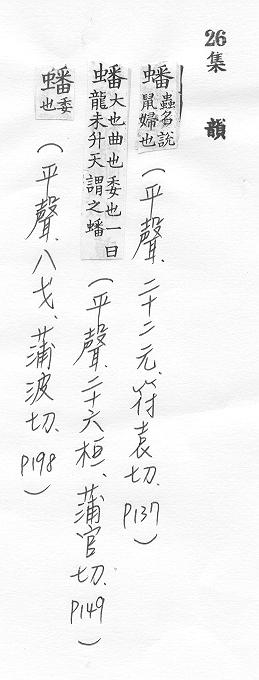 26
集韻
蟠蟲名說鼠婦也(平聲、二十二元、符袁切、P137)
蟠大也曲也委也一曰龍未升天謂之蟠(平聲、二十六桓、蒲官切、P149)
蟠委也(平聲、八戈、蒲波切、P198)